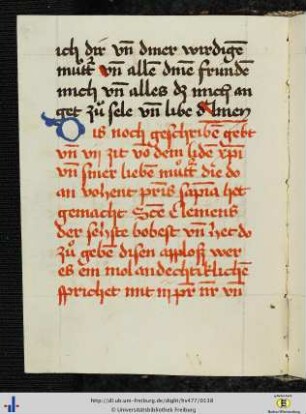 ich dir vn̄ diner wirdigē
můtt' vn̄ allē dinē frundē
mich vn̄ alles dz mich an
get zů sele vn̄ libe Amen
Dis noch geschribē gebt
vn̄ vij zit vō dem lidē xp̄i
vn̄ siner liebē můtt' die do
an vohent pr̄is sapīa het
gemacht Scē Clemens
der sehste bobest vn̄ het do
zů gebē disen applosz wer
es ein mol andechtiklichē
sprichet mit iij pr̄ nr̄ vn̄
http://dl.ub.uni-freiburg.de/diglit/hs477/0138
© Universitätsbibliothek Freiburg